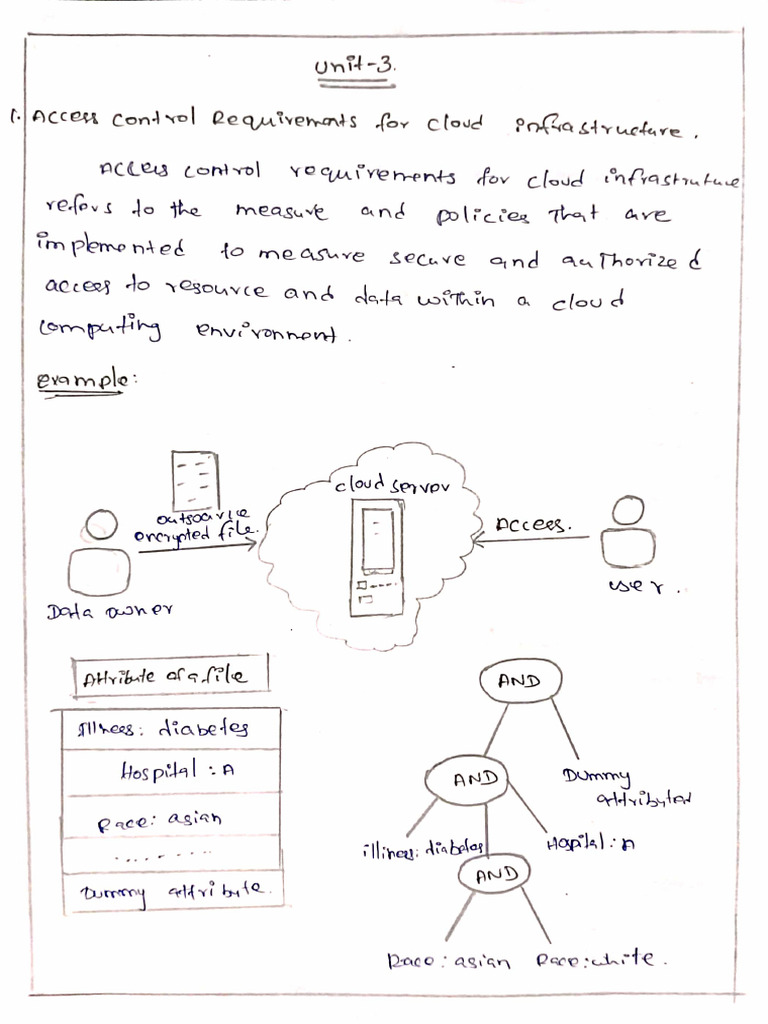 Unit-3.
1. Access control Requirements for cloud infrastructure.
Access control requirements for cloud infrastruture
refers to the measure and policies that are
implemented to measure secure and authorized
access to resource and data within a cloud
computing environment.
example:
cloud server
outsource
encrypted file.
Access.
Data owner
user.
Attribute of a file
illnees: diabetes
Hospital : A
Race: asian
.........
Dummy attribute.
AND
AND
Dummy
attributed
illness: diabetes
Hospital : A
AND
Race : asian
Race : white.